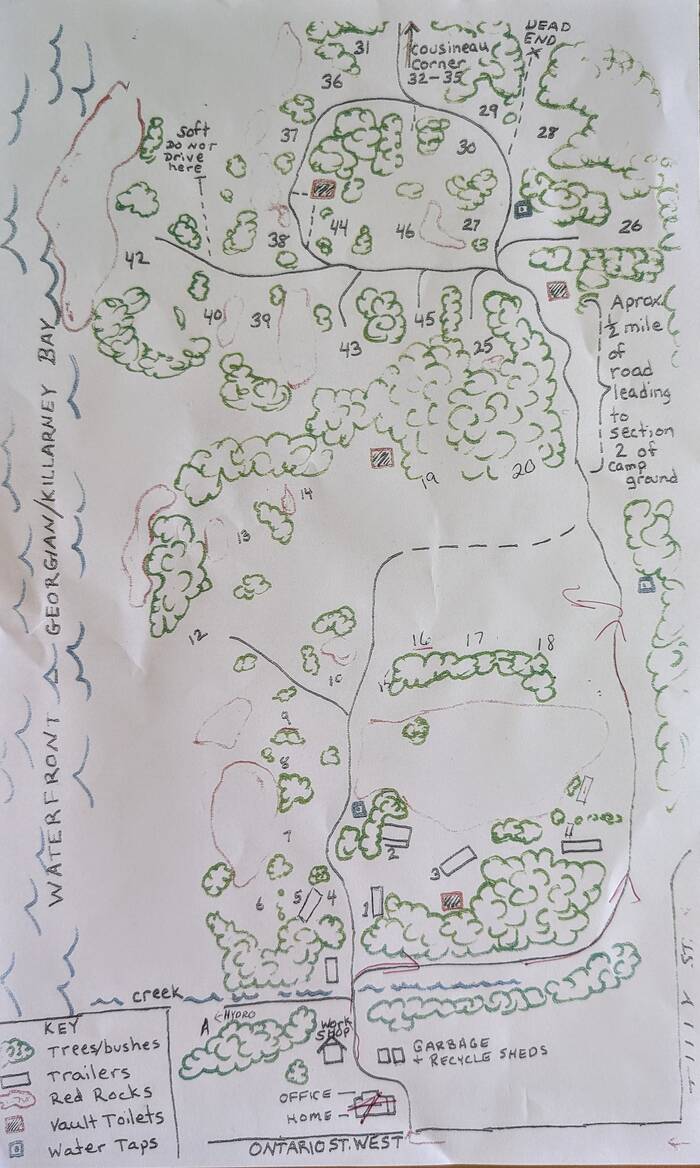 31
Cousineau
Corner
32-35
DEAD
END
X
36
29
28
37
Soft
DO NOT
Drive
here
30
44
46
27
26
38
42
40
39
43
45
25
Aprox.
1/2 mile
of
road
leading
to
section
2 of
camp
ground
19
20
14
13
12
16
17
18
10
9
8
7
2
3
6
5
4
1
WATERFRONT GEORGIAN/KILLARNEY BAY
creek
A
←HYDRO
WORK
SHOP
GARBAGE
+ RECYCLE SHEDS
OFFICE
HOME
ONTARIO ST. WEST
KEY
Trees/bushes
Trailers
Red Rocks
Vault Toilets
Water Taps